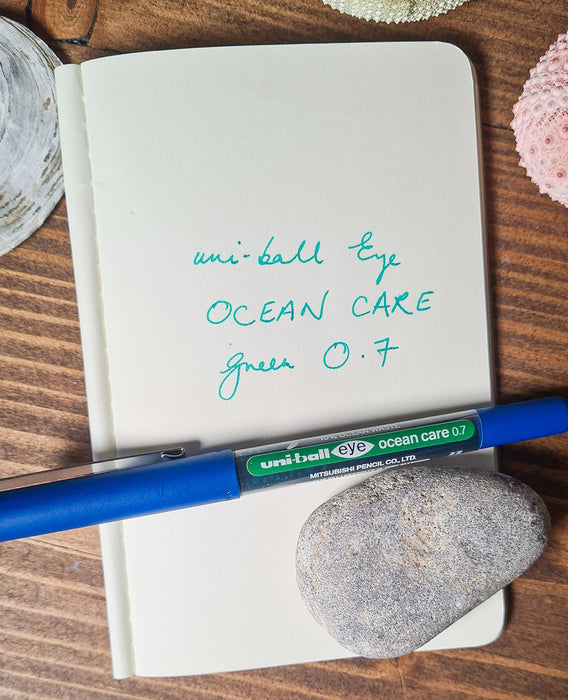 uni-ball Eye
OCEAN CARE
green 0.7
10% OCEAN WASTE
uni-ball eye ocean care 0.7
MITSUBISHI PENCIL CO., LTD.